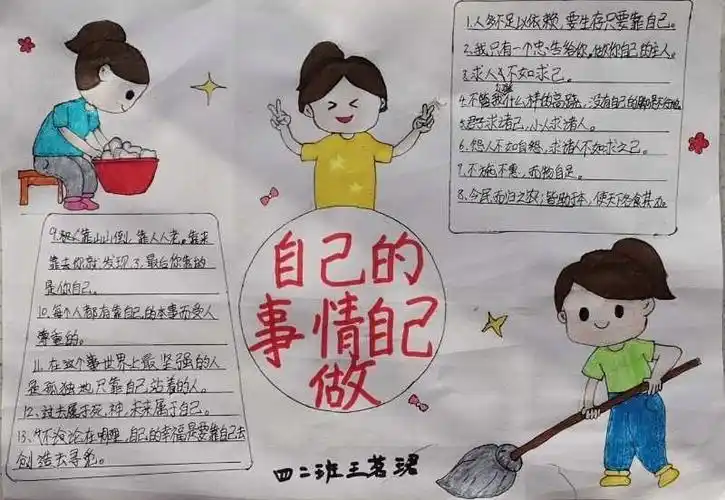 自己的
事情自己
做
1.人多不足以依赖,要生存只要靠自己。
2.我只有一个忠告给你,做你自己的主人。
3.求人不如求己。
4.不管 什么样的高 没有自己的
5.君子求诸己,小人求诸人。
6.怨人不如自怨,求诸人不如求之己。
7.不施不惠,而物自足。
8.今民而归之农,皆 本,使天下 食其力
9. 靠山山倒,靠人人老。靠来
靠去你就发现了,最后你靠的
是你自己。
10.每个人都有靠自己的本事而受人
尊重的。
11.在这个 世界上最坚强的人
是孤独地只靠自己站着的人。
12.过去属于死神,未来属于自己。
13. 论在哪里,自己的幸福是要靠自己去
创造去寻
四二班王茗珺